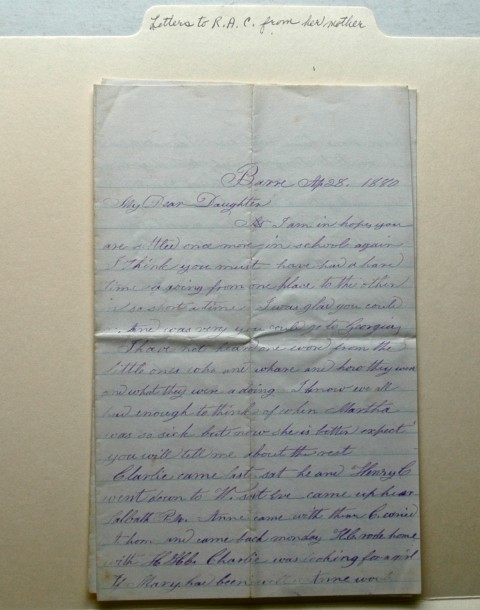 Letters to R.A.C. from her mother
Barre Ap 28. 1870
My Dear Daughter
As I am in hopes you
are settled once more in school again
I think you must have had a hard
time a going from one place to the other
in so short a time I was glad you could
very you could go to Georgia
I have not heard one word from the
little ones who are whare and how they was
and what they were a doing I know we all
had enough to think of when Martha
was so sick but now she is better expect
you will tell me about the rest
Charlie came last sat he and Henry C
went down to W. sat Eve came up here
Sabbath P.M. Anne came with them C.
hom and came back monday rode home
with H Charlie was looking for a girl
if Mary had been Anne